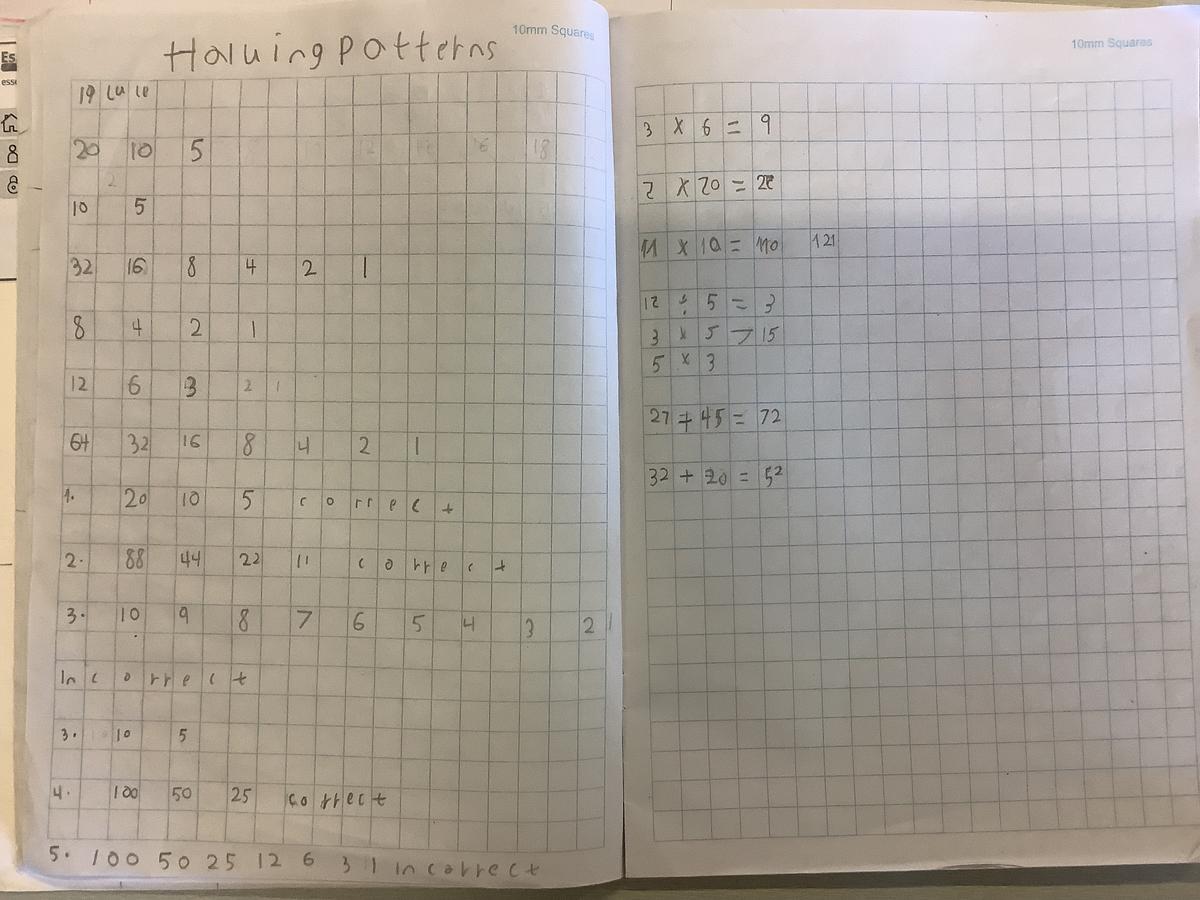 10mm Squares
Haluing Patterns
20 10 5
2
10 5
32 16 8 4 2 1
8 4 2 1
12 6 3 2 1
64 32 16 8 4 2 1
1. 20 10 5 correct
2. 88 44 22 11 correct
3. 10 9 8 7 6 5 4 3 2 1
Incorrect
3. 10 5
4. 100 50 25 correct
5. 100 50 25 12 6 3 1 incorrect
10mm Squares
3 × 6 = 9
2 × 20 =
11 × 10 = 110 121
12 ÷ 5 = 3
3 × 5 > 15
5 × 3
27 + 45 = 72
32 + 20 = 52